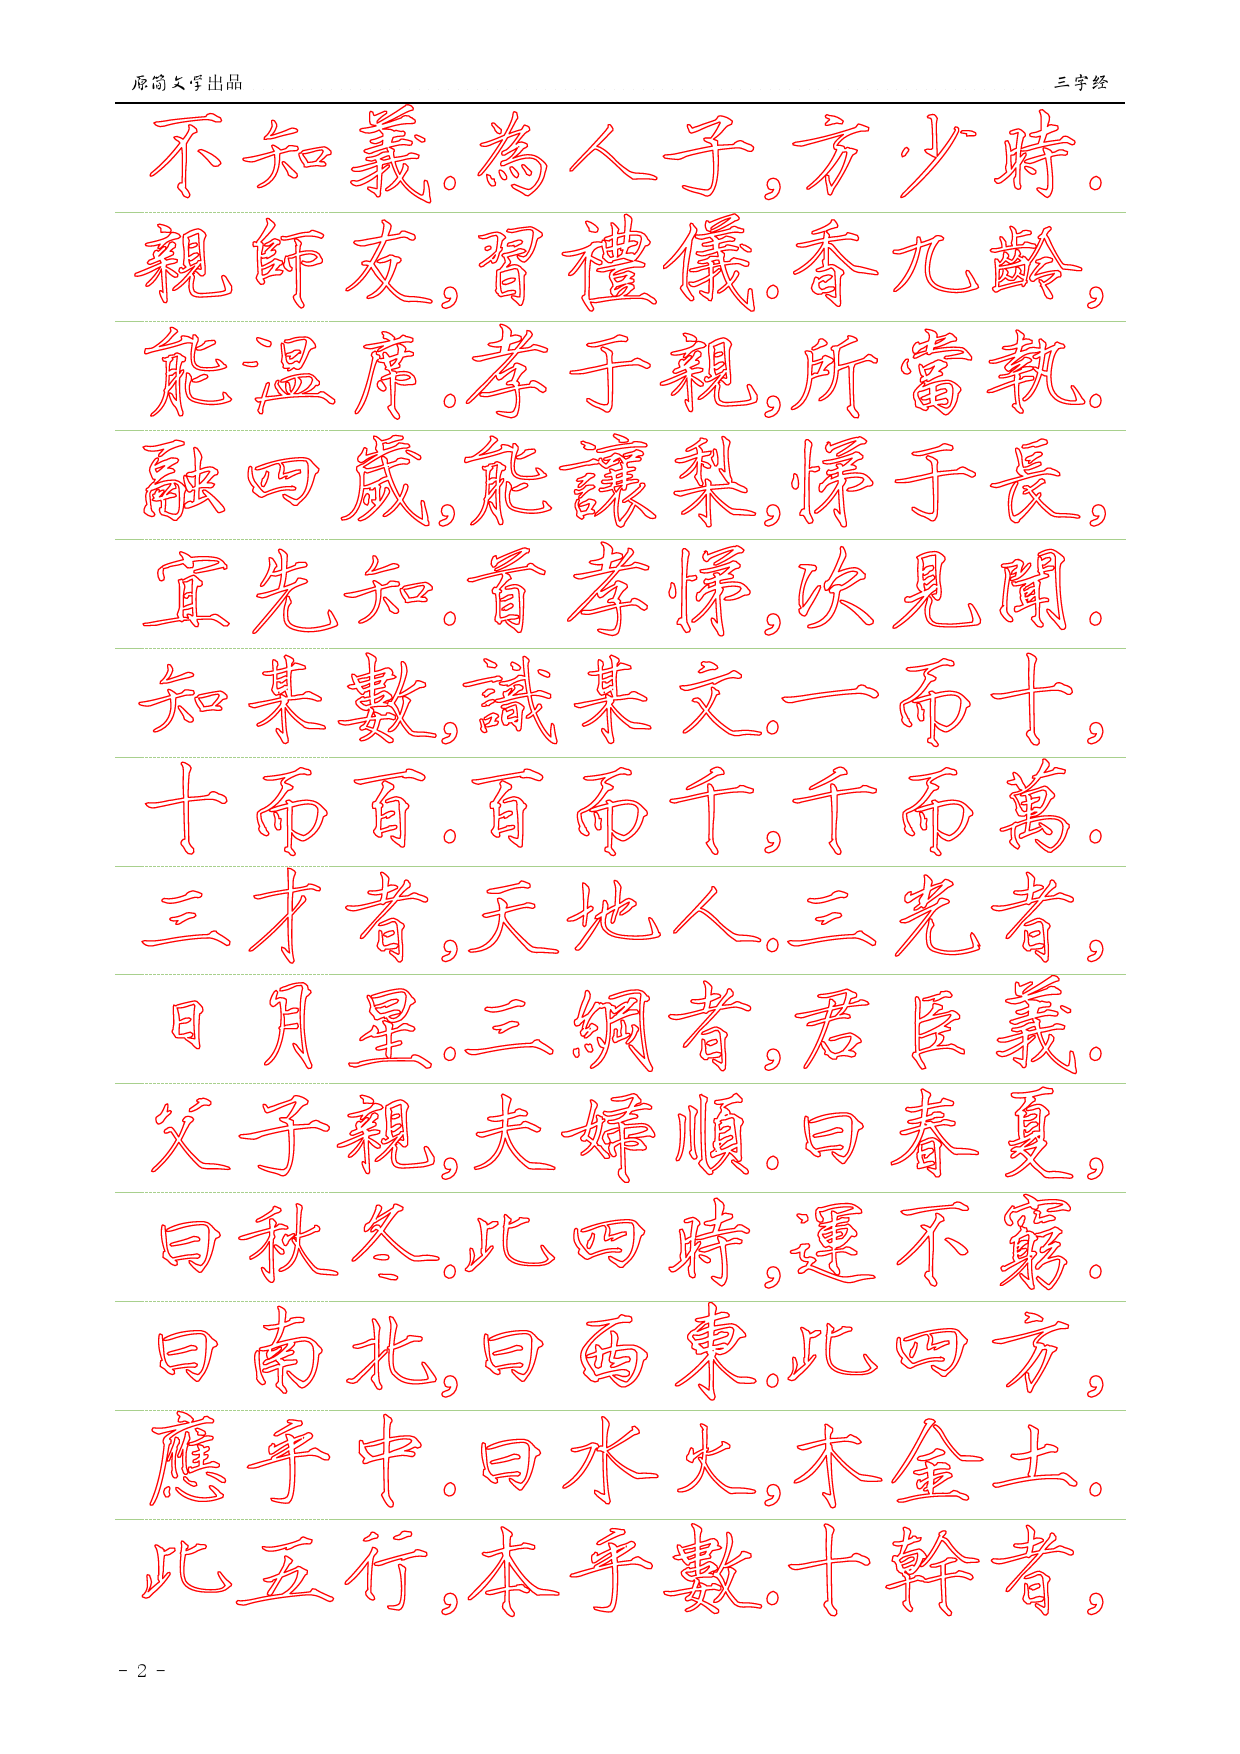 原简文学出品 三字经
不知義.為人子,方少時.
親師友,習禮儀.香九齡,
能溫席.孝于親,所當執.
融四歲,能讓梨,悌于長,
宜先知.首孝悌,次見聞.
知某數,識某文.一而十,
十而百.百而千,千而萬.
三才者,天地人.三光者,
日月星.三綱者,君臣義.
父子親,夫婦順.曰春夏,
曰秋冬.此四時,運不窮.
曰南北,曰西東.此四方,
應乎中.曰水火,木金土.
此五行,本乎數.十幹者,
- 2 -